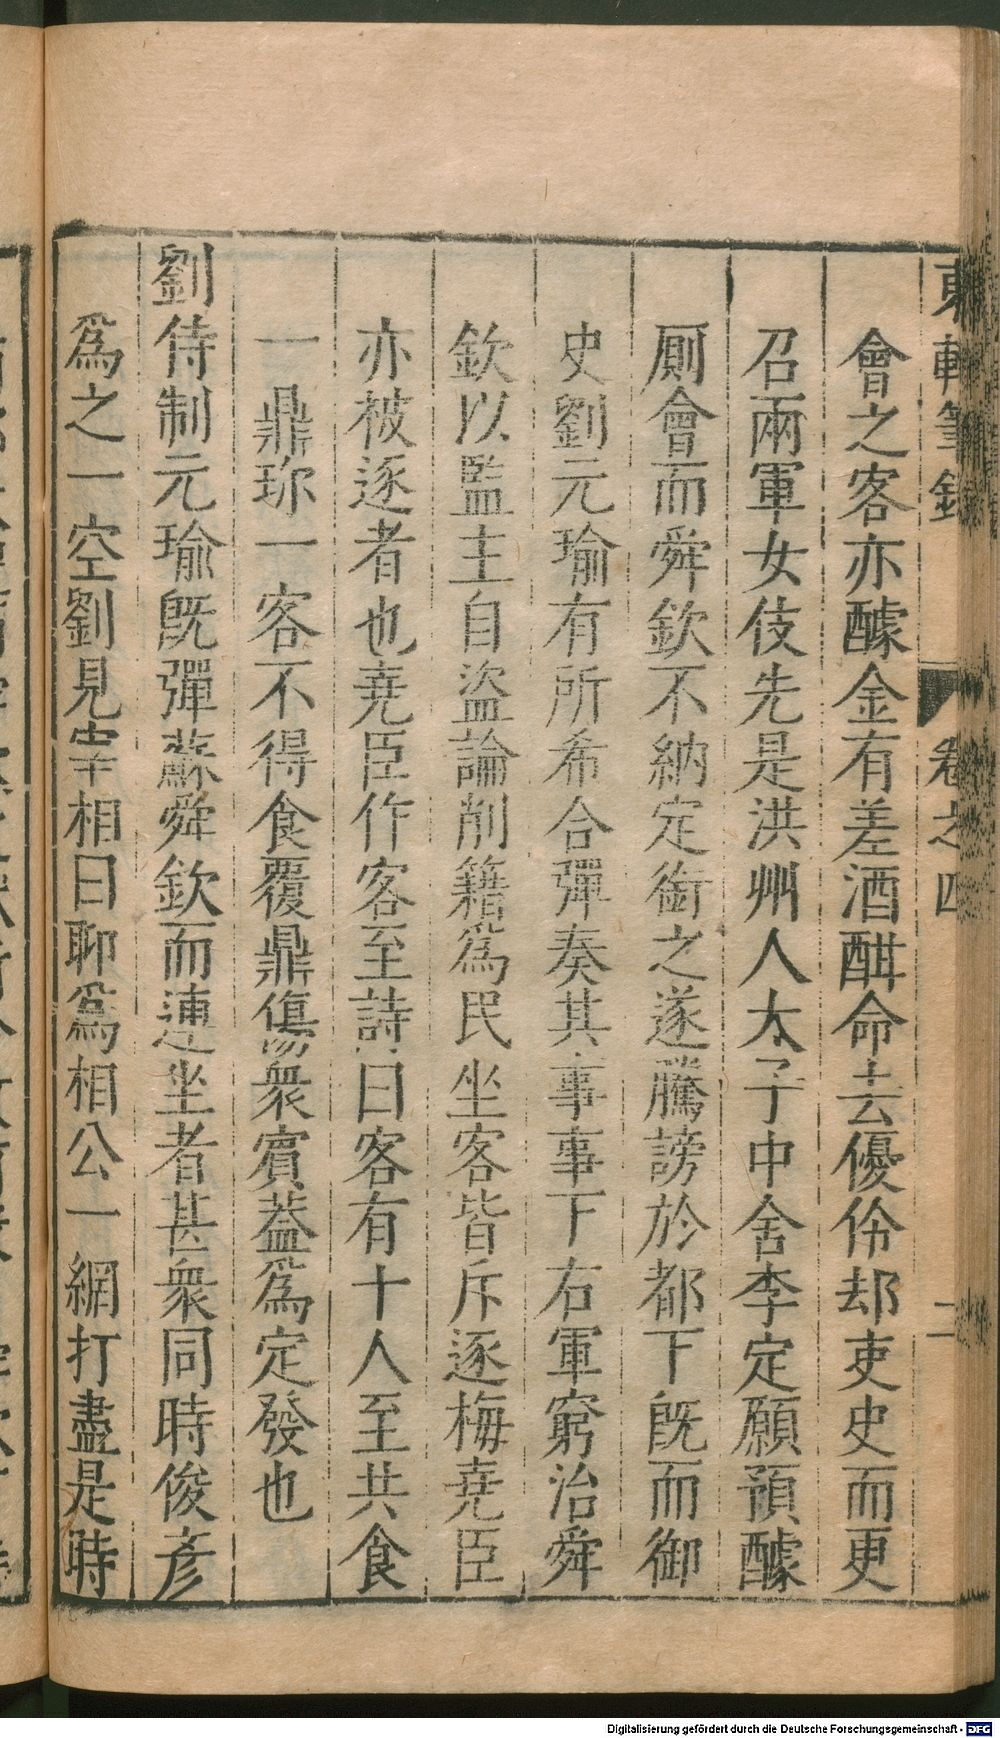 東軒筆錄 卷之四 二
會之客亦醵金有差酒酣命去優伶却吏史而更
召兩軍女伎先是洪州人太子中舍李定願預醵
厠會而舜欽不納定銜之遂騰謗於都下既而御
史劉元瑜有所希合彈奏其事事下右軍窮治舜
欽以監主自盜論削籍爲民坐客皆斥逐梅堯臣
亦被逐者也堯臣作客至詩曰客有十人至共食
一鼎珎一客不得食覆鼎傷衆賓葢爲定發也
劉侍制元瑜既彈蘇舜欽而連坐者甚衆同時俊彥
爲之一空劉見宰相曰聊爲相公一網打盡是時
Digitalisierung gefördert durch die Deutsche Forschungsgemeinschaft - DFG